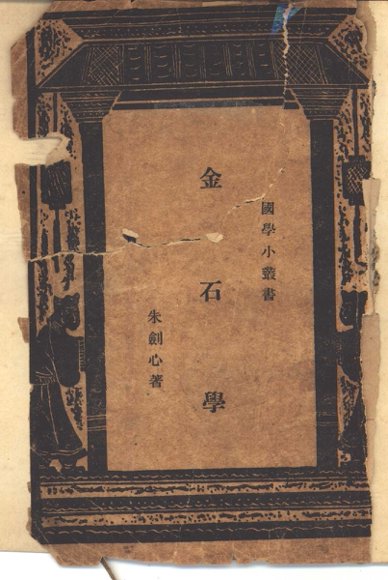 國學小叢書
金石學
朱劍心著